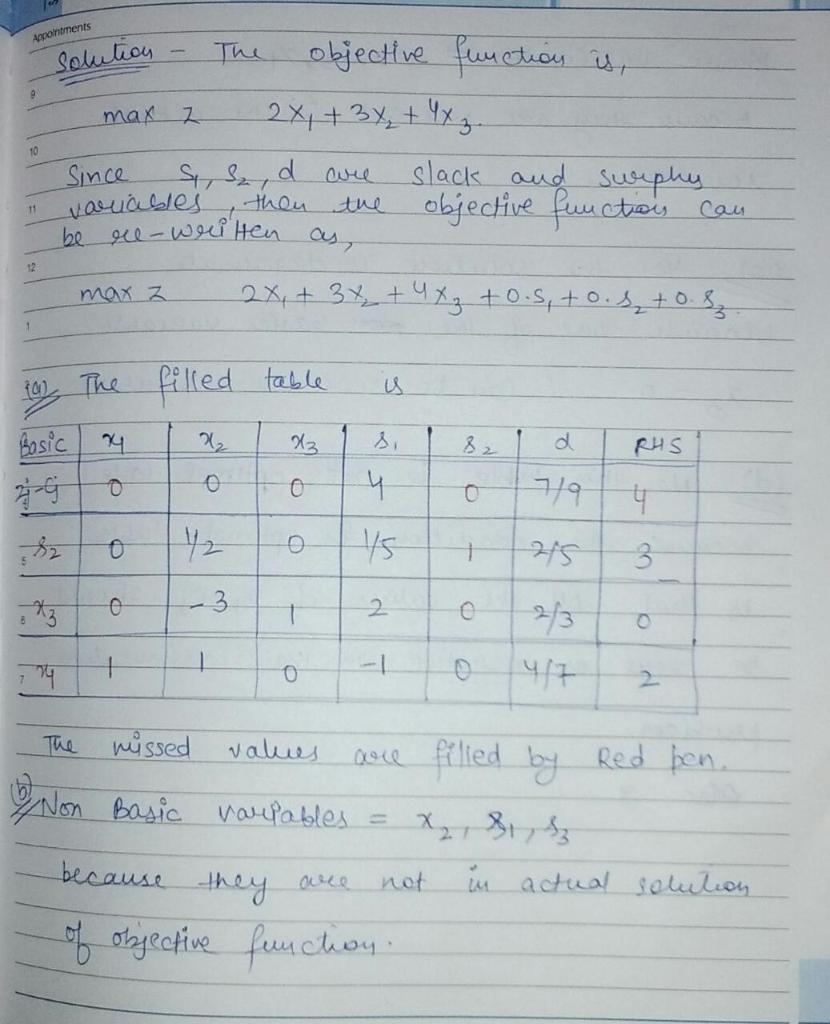 Appointments
Solution - The objective function is,
9
max z 2x₁ + 3x₂ + 4x₃.
10
Since S₁, S₂, d are slack and surplus
11 variables, then the objective function can
be re-written as,
12
max z 2x₁ + 3x₂ + 4x₃ + 0.S₁ + 0.S₂ + 0.S₃.
1
(a) The filled table is
Basic x₁ x₂ x₃ S₁ S₂ d RHS
zj-cj 0 0 0 4 0 7/9 4
5 S₂ 0 1/2 0 1/5 1 2/5 3
6 x₃ 0 -3 1 2 0 2/3 0
7 x₁ 1 1 0 -1 0 4/7 2
The missed values are filled by Red pen.
(b) Non Basic variables = x₂, S₁, S₃
because they are not in actual solution
of objective function.